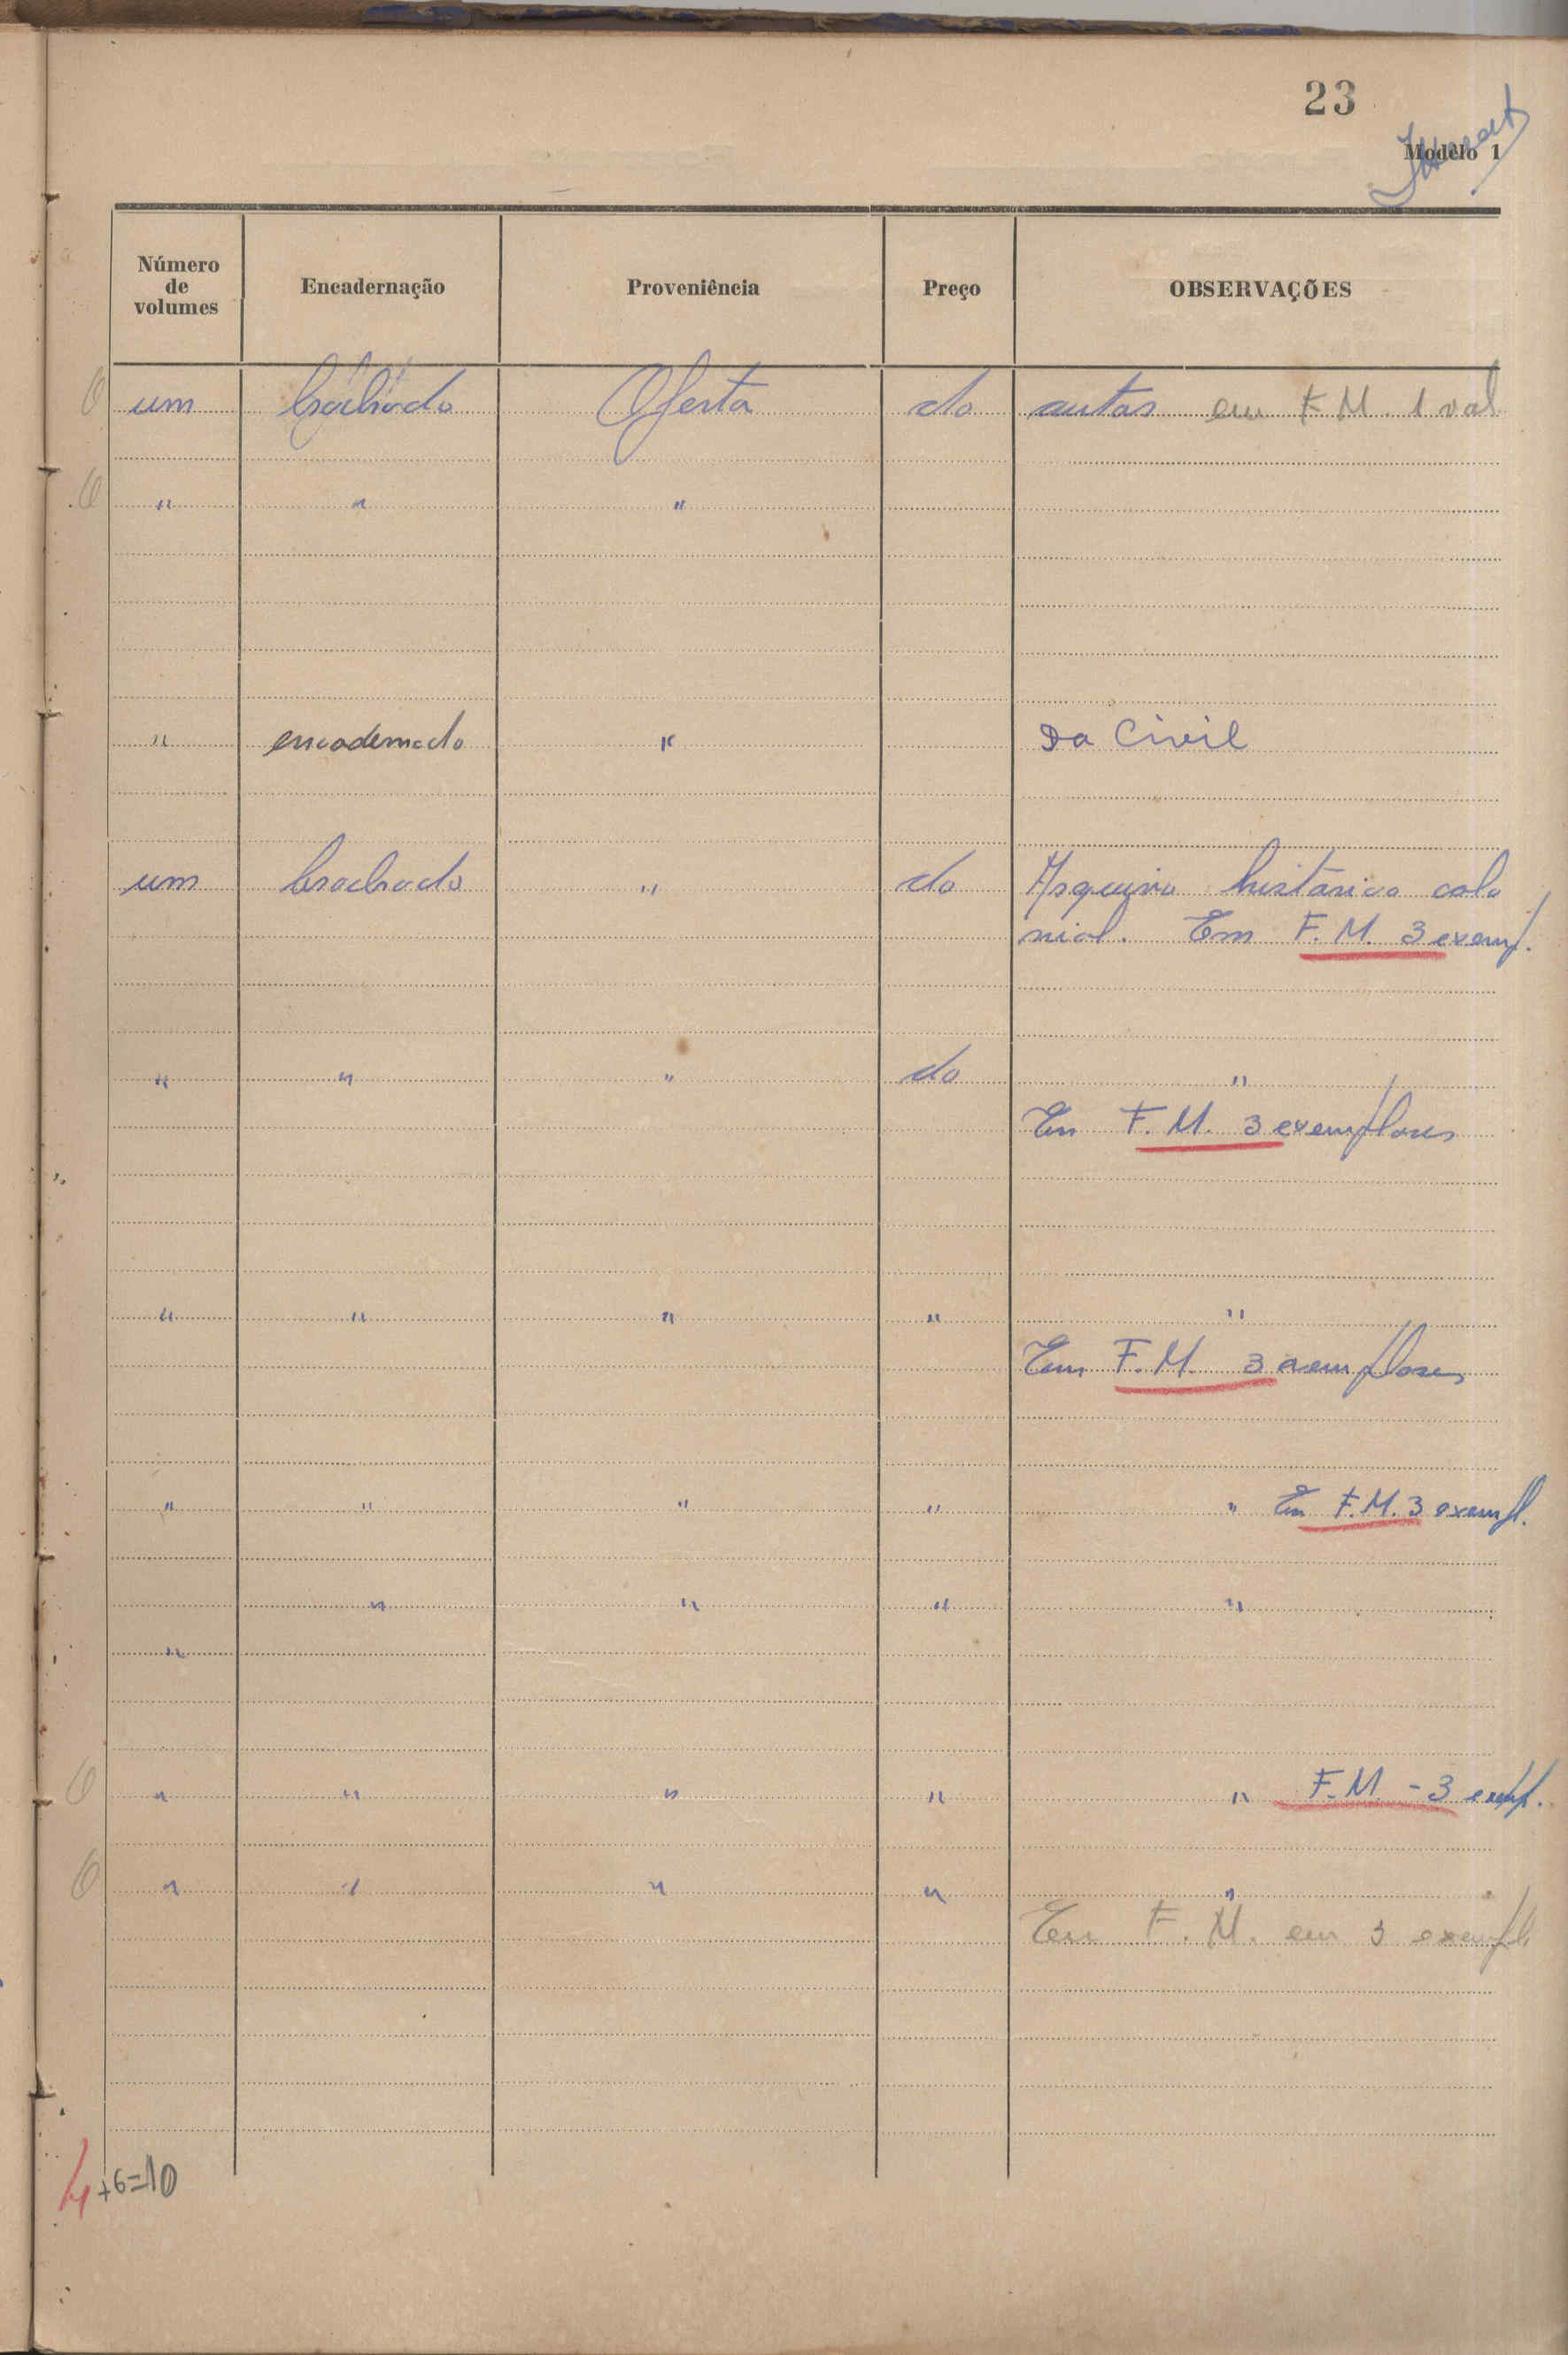 23
Modêlo 1
Número de volumes Encadernação Proveniência Preço OBSERVAÇÕES
um brochado Oferta do autor em F.M. 1 vol
" " "
" encadernado " Da Civil
um brochado " do Arquivo histórico colo
nial. Em F.M. 3 exemp.
" " " do "
Em F.M. 3 exemplares
" " " " "
Em F.M. 3 exemplares
" " " " " Em F.M. 3 exempl.
" " " "
"
" " " " " F.M. - 3 exempl.
" " " " "
Em F.M. em 3 exempl.
4+6=10